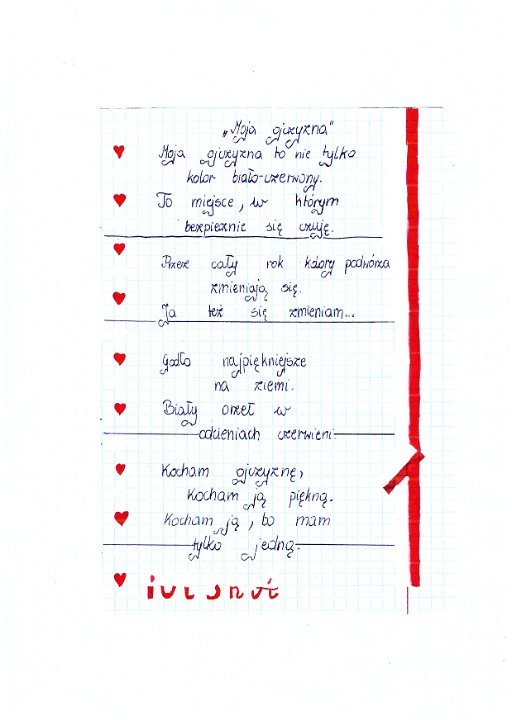 „Moja ojczyzna"
Moja ojczyzna to nie tylko
kolor biało-czerwony.
To miejsce, w którym
bezpiecznie się czuję.
Przez cały rok kolory podwórza
zmieniają się.
Ja też się zmieniam...
Godło najpiękniejsze
na ziemi.
Biały orzeł w
odcieniach czerwieni
Kocham ojczyznę,
Kocham ją piękną.
Kocham ją, bo mam
tylko jedną.